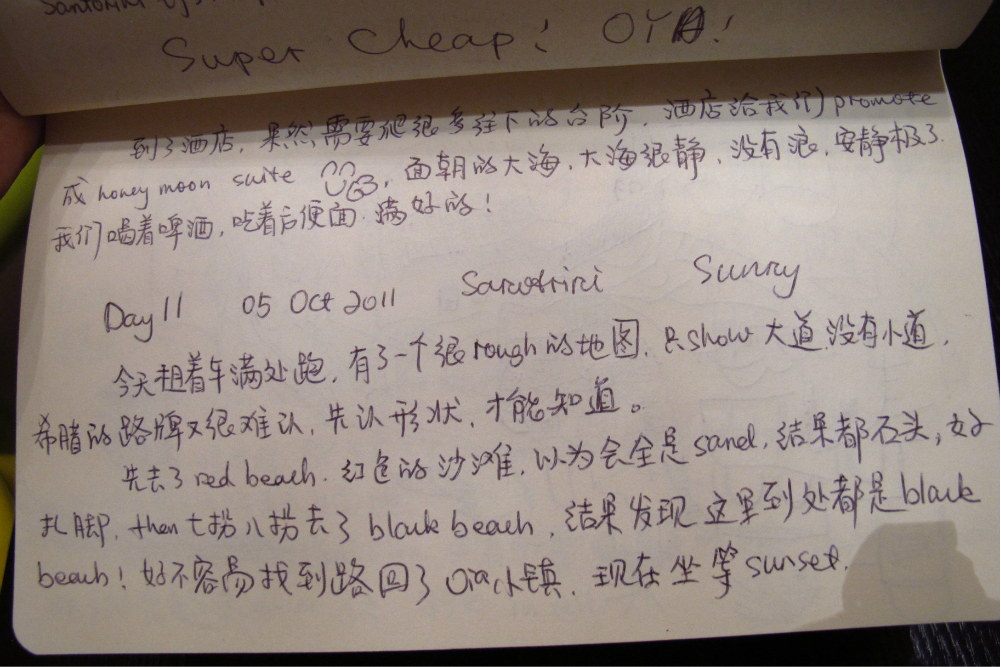 Santorini
Super Cheap! OIA!
到了酒店，果然需要爬很多往下的台阶，酒店给我们 promote
成 honey moon suite，面朝的大海，大海很静，没有浪，安静极了.
我们喝着啤酒，吃着方便面. 满好的！
Day 11 05 Oct 2011 Santorini Sunny
今天租着车满处跑，有了一个很rough的地图，只show 大道 没有小道，
希腊的路牌又很难认，先认形状，才能知道。
先去了 red beach. 红色的沙滩，以为会全是sand，结果都石头，好
扎脚，then 七拐八拐去了 black beach，结果发现 这里到处都是black
beach！好不容易找到路回了Oia小镇，现在坐等sunset.